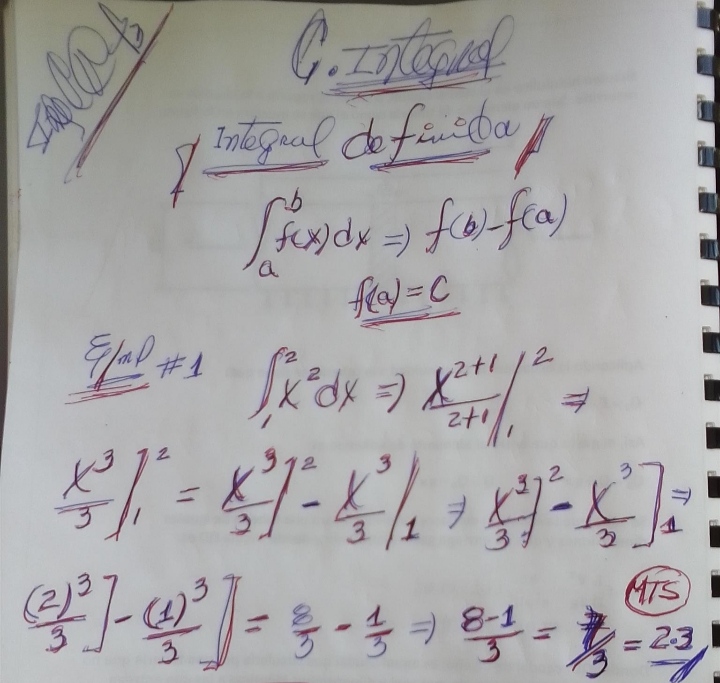 C. Integral
Integral definida
∫_a^b f(x)dx ⇒ f(b)-f(a)
f(a) = C
Ejmpl #1 ∫_1^2 x^2 dx ⇒ x^{2+1}/2+1 /_1^2 ⇒
x^3/3 /_1^2 = x^3/3 /^2 - x^3/3 /_1 ⇒ x^3/3 ]^2 - x^3/3 ]_1 ⇒
MTS
(2)^3/3 ] - (1)^3/3 ] = 8/3 - 1/3 ⇒ 8-1/3 = 7/3 = 2.3